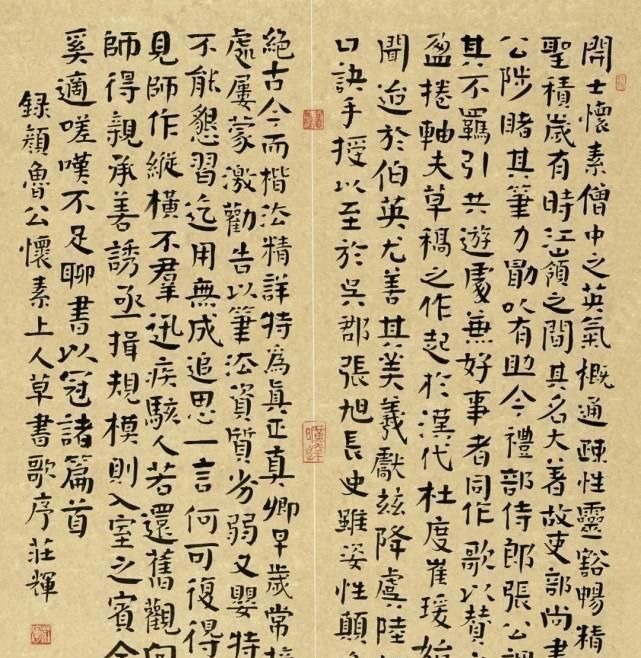 開士懷素僧中之英氣概通疎性靈豁暢精
聖積歲有時江嶺之間其名大著故吏部尚書
公陟睹其筆力勖以有助今禮部侍郎張公謂
其不羈引共遊處兼好事者同作歌以贊
盈捲軸夫草稿之作起於漢代杜度崔瑗始
聞迨於伯英尤善其美羲獻茲降虞陸
口訣手授以至於吳郡張旭長史雖姿性顛
絕古今而楷法精詳特為真正真卿早歲常接
處屢蒙激勸告以筆法資質劣弱又嬰特
不能懇習迄用無成追思一言何可復得
見師作縱橫不羣迅疾駭人若還舊觀向
師得親承善誘亟揖規模則入室之賓
奚適嗟嘆不足聊書以冠諸篇首
錄顏魯公懷素上人草書歌序莊輝